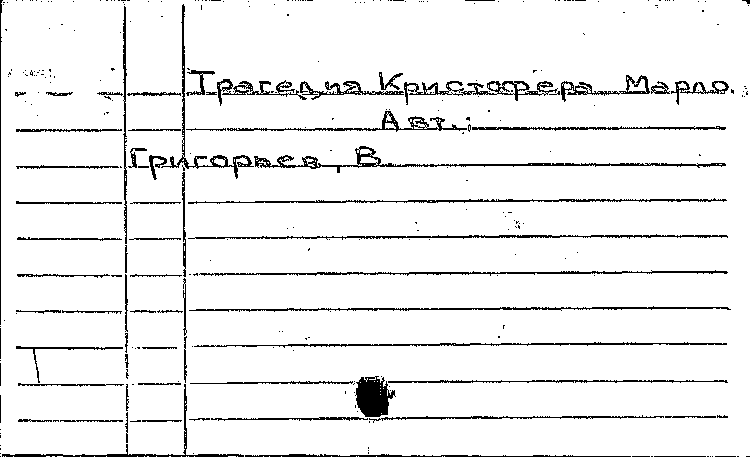 Трагедия Кристофера Марло.
Авт.:
Григорьев, В.